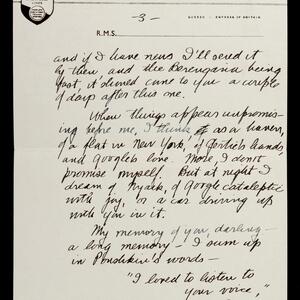 - 3 -
R.M.S.
and if I have news I'll send it
by then, and the Berengaria being
fast, it should come to you a couple
of days after this one.
When things appear unpromis-
ing before me, I think as a haven,
of a flat in New York, of hands,
and Google's love. More, I don't
promise myself. But at night I
dream of Nyack, of Google cataleptic
with joy, or a car driving up
with you in it.
My memory of you, darling -
a long memory - I sum up
in Pondikin's words -
"I loved to listen to
your voice,"